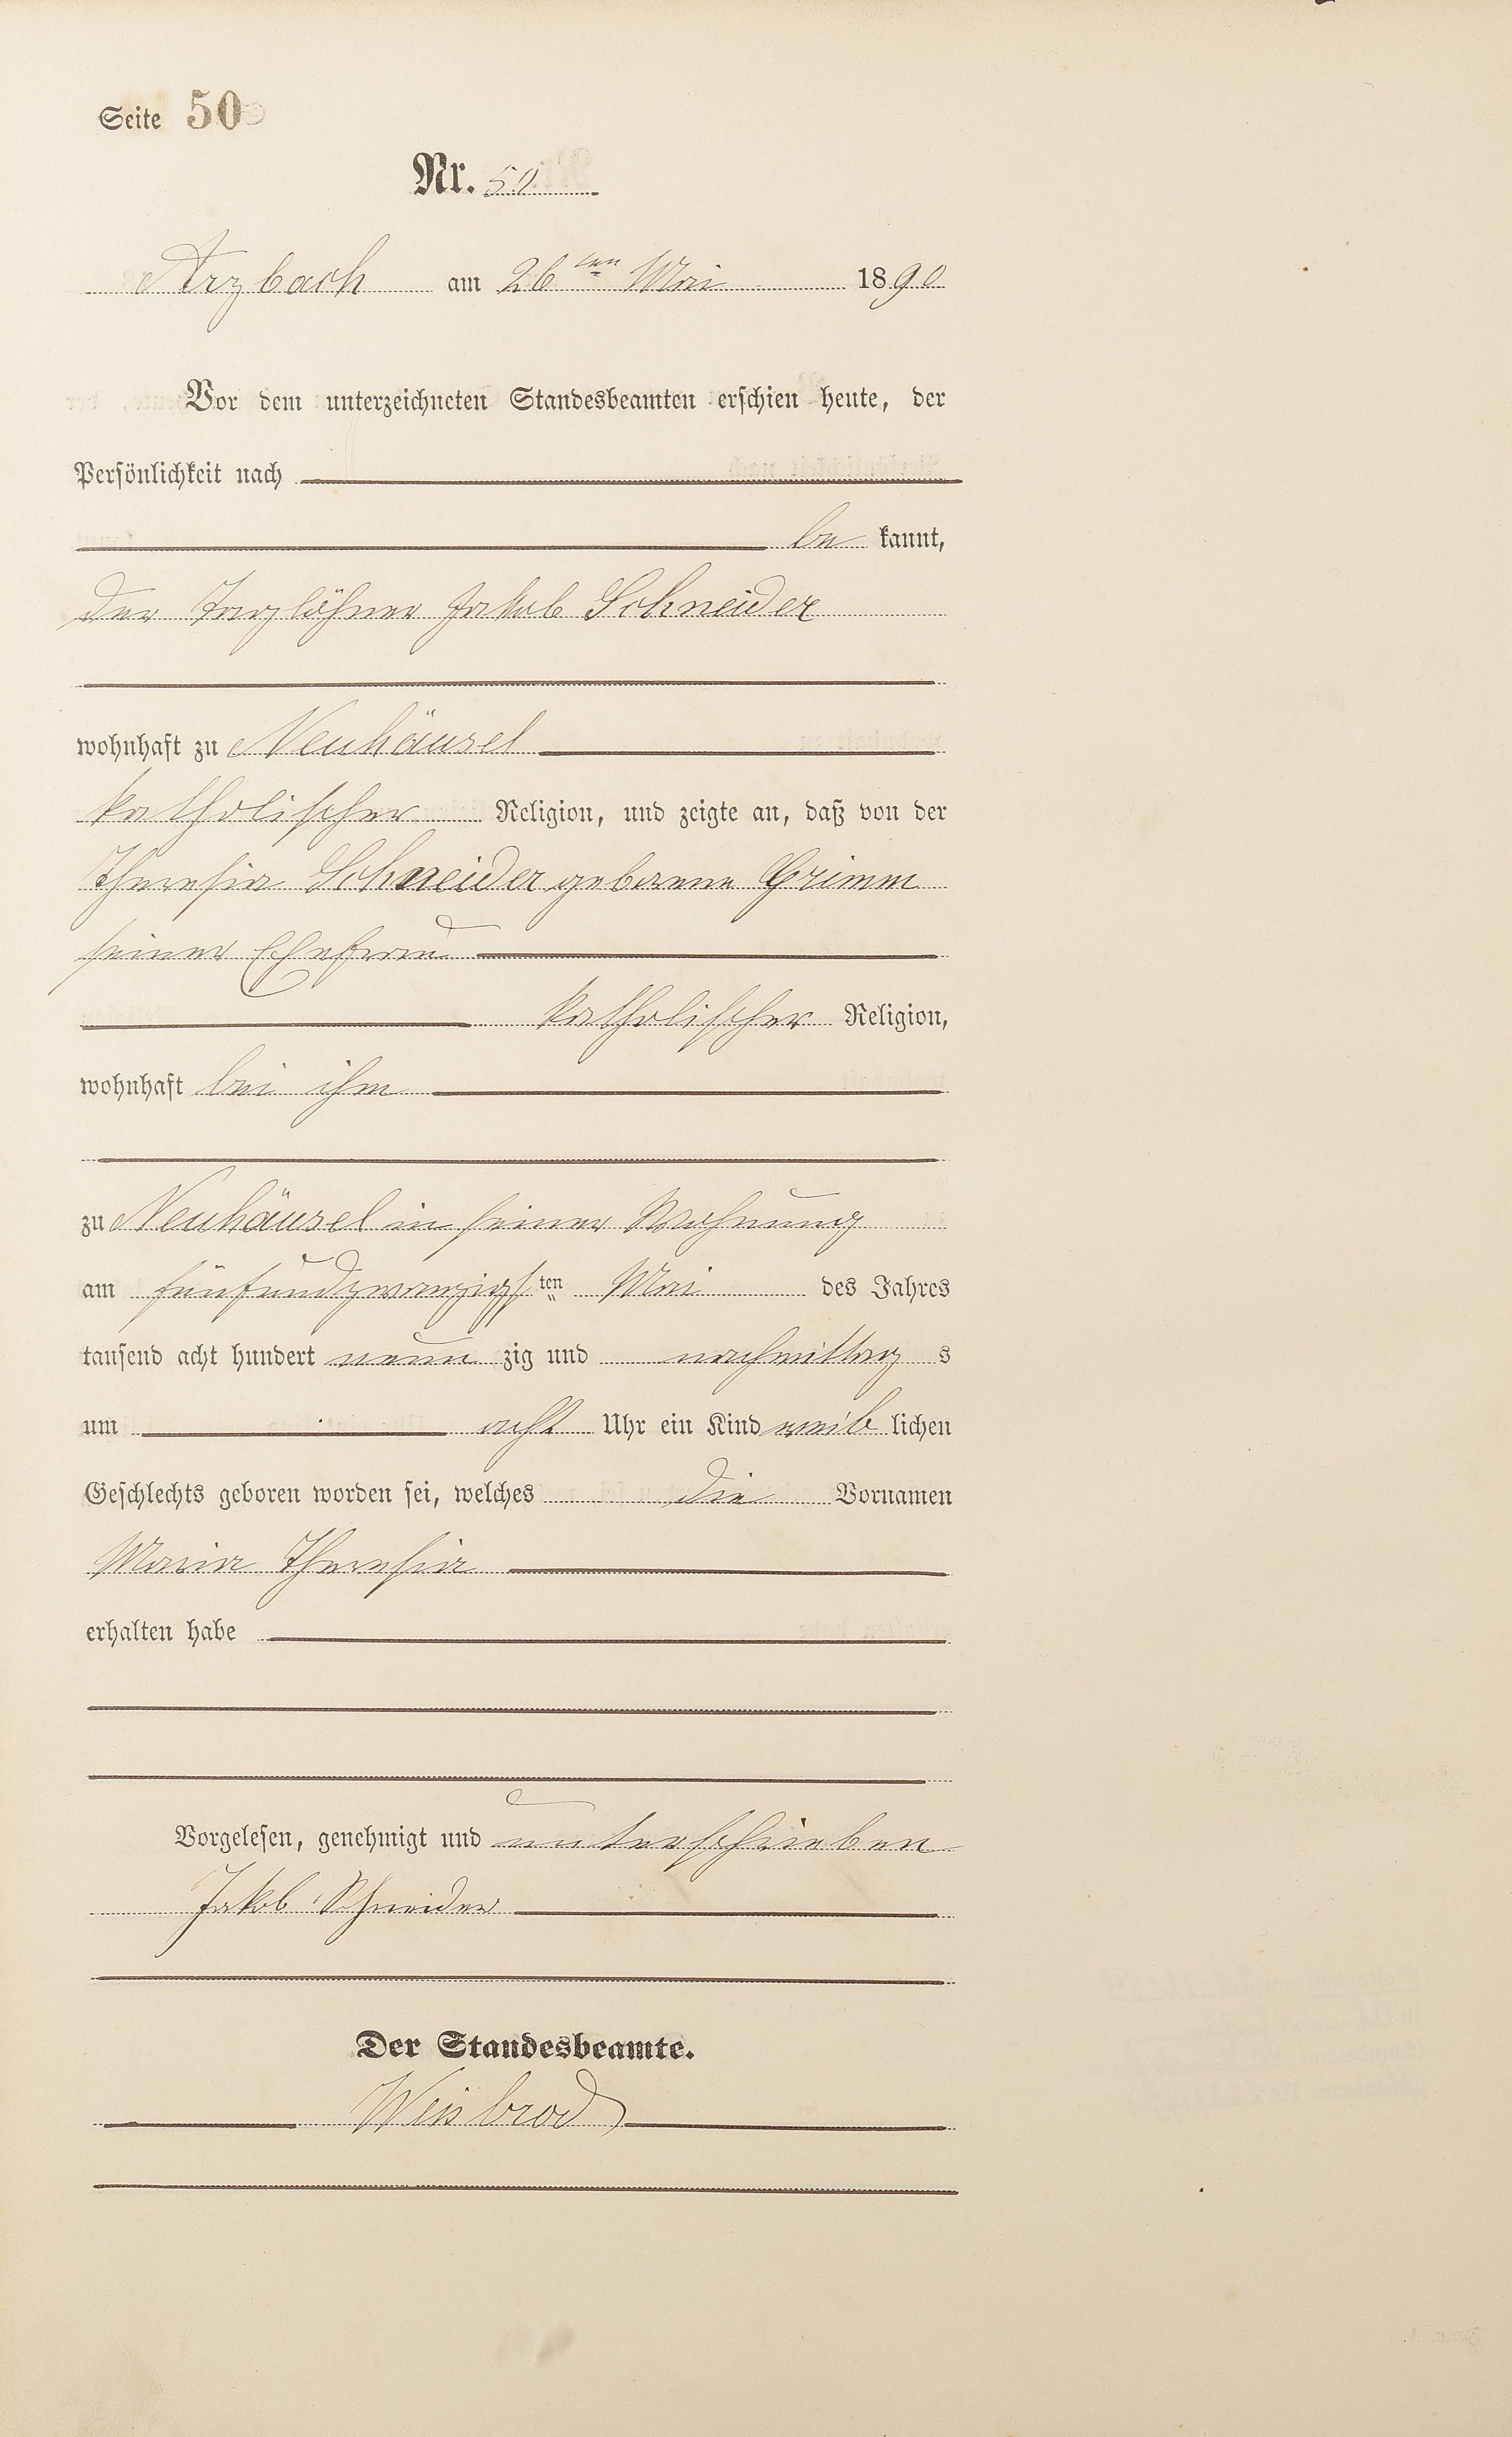 Seite 50
Nr. 50
Arzbach am 26ten Mai 1890
Vor dem unterzeichneten Standesbeamten erschien heute, der
Persönlichkeit nach
be kannt,
der Taglöhner Jakob Schneider
wohnhaft zu Neuhäusel
katholischer Religion, und zeigte an, daß von der
Theresia Schneider geborene Grimm
seiner Ehefrau
katholischer Religion,
wohnhaft bei ihm
zu Neuhäusel in seiner Wohnung
am fünfundzwanzigsten Mai des Jahres
tausend acht hundert neun zig und nachmittag s
um acht Uhr ein Kind weib lichen
Geschlechts geboren worden sei, welches die Vornamen
Maria Theresia
erhalten habe
Vorgelesen, genehmigt und unterschrieben
Jakob Schneider
Der Standesbeamte.
Weisbrod